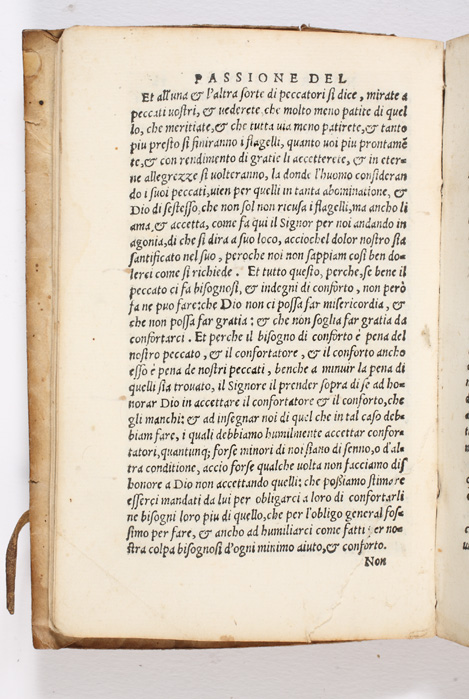 PASSIONE DEL
Et all'una & l'altra sorte di peccatori si dice, mirate a
peccati uostri, & uederete che molto meno patite di quel
lo, che meritiate, & che tutta uia meno patirete, & tanto
piu presto si finiranno i flagelli, quanto uoi piu prontamẽ
te, & con rendimento di gratie li accetterete, & in eter=
ne allegrezze si uolteranno, la donde l'huomo consideran
do i suoi peccati, uien per quelli in tanta abominatione, &
Dio di sestesso, che non sol non ricusa i flagelli, ma ancho li
ama, & accetta, come fa qui il Signor per noi andando in
agonia, di che si dira a suo loco, acciochel dolor nostro sia
santificato nel suo, peroche noi non sappiam così ben do=
lerci come si richiede. Et tutto questo, perche, se bene il
peccato ci fa bisognosi, & indegni di conforto, non però
fa ne puo fare: che Dio non ci possa far misericordia, &
che non possa far gratia: & che non soglia far gratia da
confortarci. Et perche il bisogno di conforto è pena del
nostro peccato, & il confortatore, & il conforto ancho
esso è pena de nostri peccati, benche a minuir la pena di
quelli sia trouato, il Signore il prender sopra di se ad ho=
norar Dio in accettare il confortatore & il conforto, che
gli manchi: & ad insegnar noi di quel che in tal caso deb=
biam fare, i quali debbiamo humilmente accettar confor=
tatori, quantunq; forse minori di noi siano di senno, o d'al=
tra conditione, accio forse qualche uolta non facciamo dis
honore a Dio non accettando quelli: che possiamo stimare
esserci mandati da lui per obligarci a loro di confortarli
ne bisogni loro piu di quello, che per l'obligo general fos=
simo per fare, & ancho ad humiliarci come fatti per no=
stra colpa bisognosi d'ogni minimo aiuto, & conforto.
Non